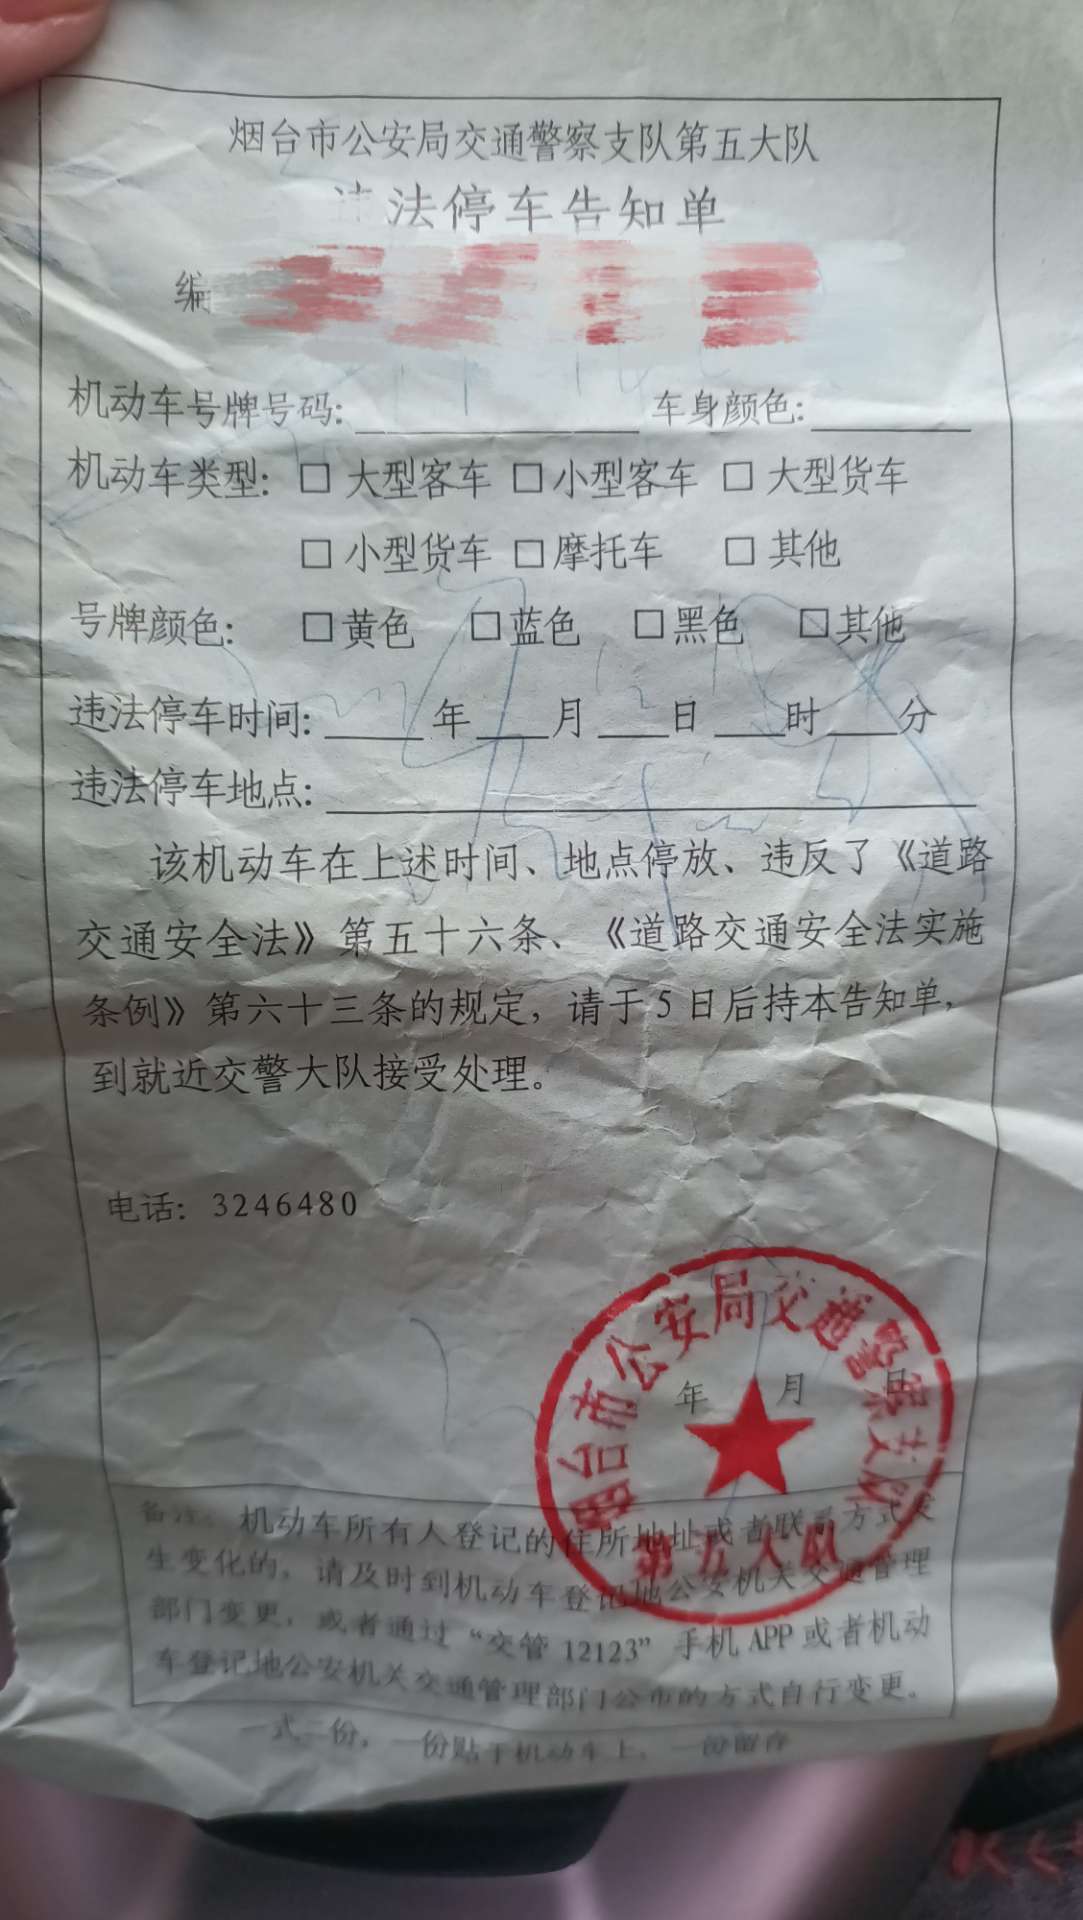 烟台市公安局交通警察支队第五大队
违法停车告知单
编
机动车号牌号码: 车身颜色:
机动车类型: □ 大型客车 □ 小型客车 □ 大型货车
□ 小型货车 □ 摩托车 □ 其他
号牌颜色: □ 黄色 □ 蓝色 □ 黑色 □ 其他
违法停车时间: ____年___月___日___时___分
违法停车地点:
该机动车在上述时间、地点停放、违反了《道路
交通安全法》第五十六条、《道路交通安全法实施
条例》第六十三条的规定，请于5日后持本告知单，
到就近交警大队接受处理。
电话: 3246480
烟台市公安局交通警察支队
年 月 日
第五大队
备注: 机动车所有人登记的住所地址或者联系方式发
生变化的，请及时到机动车登记地公安机关交通管理
部门变更，或者通过“交管12123”手机APP或者机动
车登记地公安机关交通管理部门公布的方式自行变更。
一式二份，一份贴于机动车上，一份留存